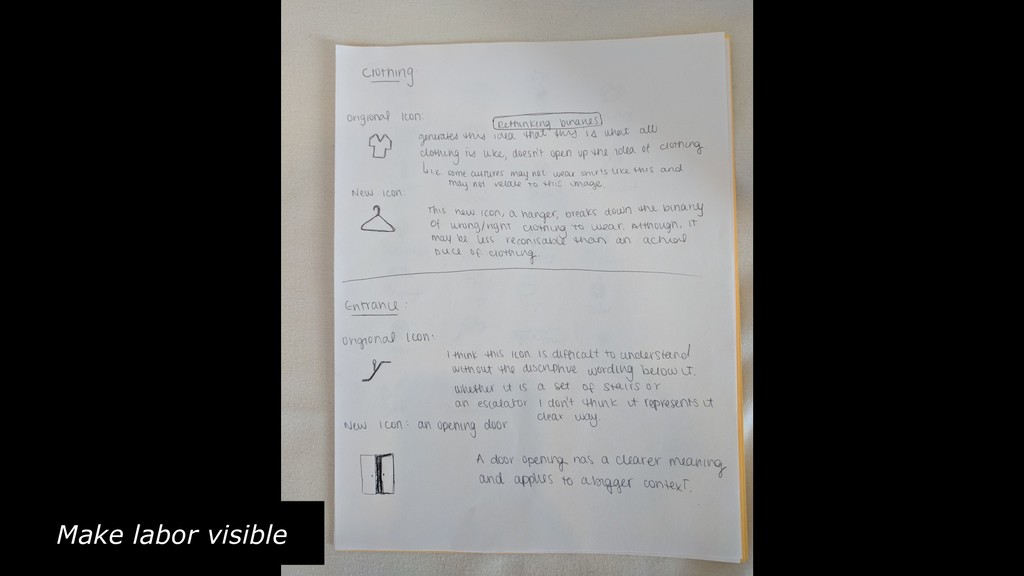 Clothing
Origional Icon:
Rethinking binaries
generates this idea that this is what all
clothing is like, doesn't open up the idea of clothing
i.e. some cultures may not wear shirts like this and
may not relate to this image.
New Icon:
This new icon, a hanger, breaks down the binary
of wrong/right clothing to wear. Although, it
may be less reconisable than an actual
piece of clothing.
Entrance:
Origional Icon:
I think this icon is difficalt to understand
without the discriptive wording below it.
Whether it is a set of stairs or
an escalator I don't think it represents it
clear way.
New Icon: an opening door
A door opening has a clearer meaning
and applies to a bigger context.
Make labor visible